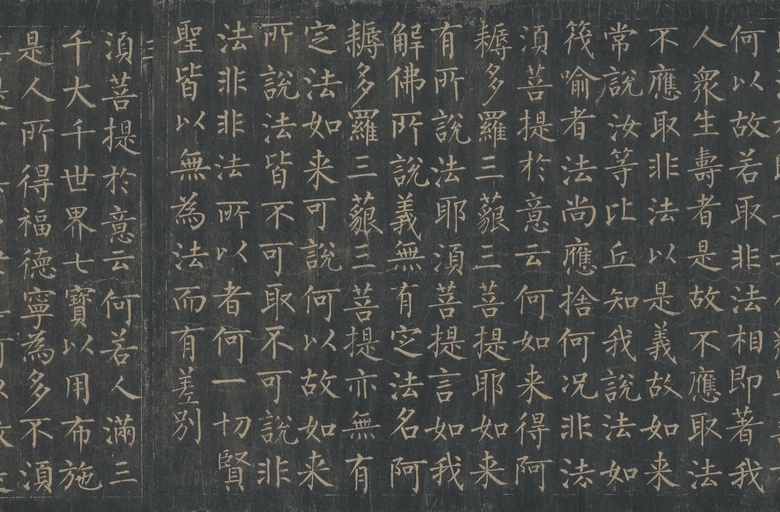 何以故若取非法相即著我
人衆生壽者是故不應取法
不應取非法以是義故如来
常說汝等比丘知我說法如
筏喻者法尚應捨何况非法
須菩提於意云何如来得阿
耨多羅三藐三菩提耶如来
有所說法耶須菩提言如我
解佛所說義無有定法名阿
耨多羅三藐三菩提亦無有
定法如来可說何以故如来
所說法皆不可取不可說非
法非非法所以者何一切賢
聖皆以無為法而有差别
須菩提於意云何若人滿三
千大千世界七寶以用布施
是人所得福德寧為多不須